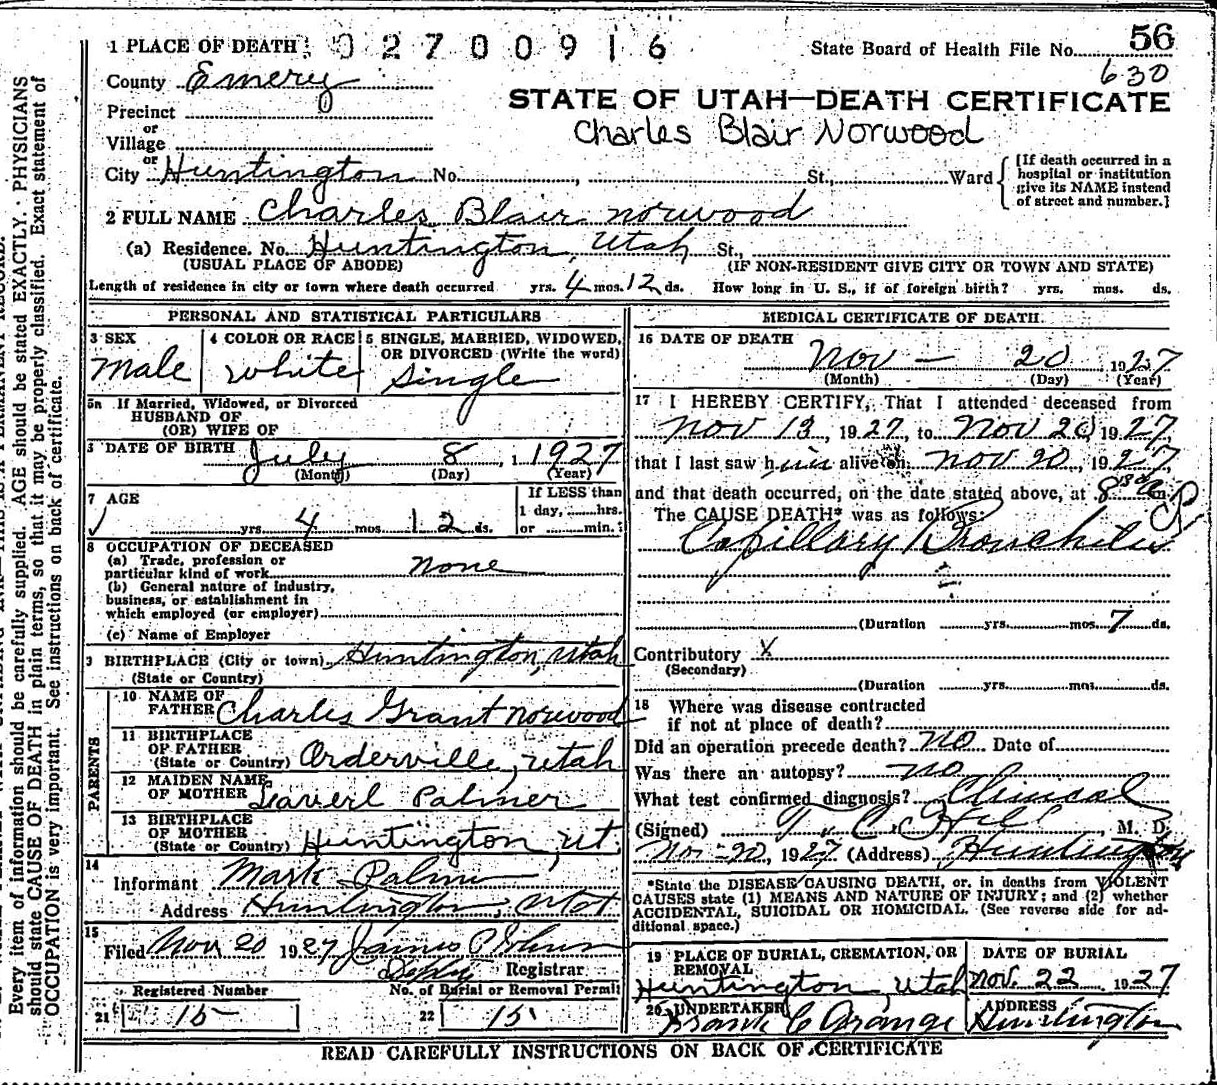 1 PLACE OF DEATH 02700916
State Board of Health File No. 56
630
County Emery
STATE OF UTAH—DEATH CERTIFICATE
Precinct
Charles Blair Norwood
or
Village
or
City Huntington No. , St., Ward
[If death occurred in a hospital or institution give its NAME instead of street and number.]
2 FULL NAME Charles Blair Norwood
(a) Residence. No. Huntington, Utah St.,
(USUAL PLACE OF ABODE) (IF NON-RESIDENT GIVE CITY OR TOWN AND STATE)
Length of residence in city or town where death occurred yrs. 4 mos. 12 ds. How long in U. S., if of foreign birth? yrs. mos. ds.
PERSONAL AND STATISTICAL PARTICULARS
3 SEX
Male
4 COLOR OR RACE
White
5 SINGLE, MARRIED, WIDOWED,
OR DIVORCED (Write the word)
Single
5a If Married, Widowed, or Divorced
HUSBAND OF
(OR) WIFE OF
DATE OF BIRTH July 8, 1927
(Month) (Day) (Year)
7 AGE
yrs. 4 mos. 12 ds.
If LESS than
1 day, hrs.
or min.
8 OCCUPATION OF DECEASED
(a) Trade, profession or
particular kind of work None
(b) General nature of industry,
business, or establishment in
which employed (or employer)
(c) Name of Employer
9 BIRTHPLACE (City or town) Huntington, Utah
(State or Country)
PARENTS
10 NAME OF
FATHER Charles Grant Norwood
11 BIRTHPLACE
OF FATHER
(State or Country) Orderville, Utah
12 MAIDEN NAME
OF MOTHER Laverl Palmer
13 BIRTHPLACE
OF MOTHER
(State or Country) Huntington, Ut.
14
Informant Mark Palmer
Address Huntington, Utah
15
Filed Nov 20 1927 James P
Deputy Registrar
Registered Number No. of Burial or Removal Permit
21 15 22 15
MEDICAL CERTIFICATE OF DEATH
16 DATE OF DEATH
Nov — 20 1927
(Month) (Day) (Year)
17 I HEREBY CERTIFY, That I attended deceased from
Nov 13, 1927, to Nov 20, 1927
that I last saw him alive on Nov 20, 1927
and that death occurred, on the date stated above, at 8
The CAUSE DEATH* was as follows:
Capillary Bronchitis
(Duration yrs. mos. 7 ds.
Contributory X
(Secondary)
(Duration yrs. mos. ds.
18 Where was disease contracted
if not at place of death?
Did an operation precede death? No Date of
Was there an autopsy? no
What test confirmed diagnosis? Clinical
(Signed) T. C. Hill, M. D.
Nov 20, 1927 (Address) Huntington
*State the DISEASE CAUSING DEATH, or, in deaths from VIOLENT
CAUSES state (1) MEANS AND NATURE OF INJURY; and (2) whether
ACCIDENTAL, SUICIDAL OR HOMICIDAL. (See reverse side for ad-
ditional space.)
19 PLACE OF BURIAL, CREMATION, OR
REMOVAL
Huntington, Utah
DATE OF BURIAL
Nov. 22 1927
20 UNDERTAKER
Frank C Orange
ADDRESS
Huntington
READ CAREFULLY INSTRUCTIONS ON BACK OF CERTIFICATE
Every item of information should be carefully supplied. AGE should be stated EXACTLY. PHYSICIANS
should state CAUSE OF DEATH in plain terms, so that it may be properly classified. Exact statement of
OCCUPATION is very important. See instructions on back of certificate.